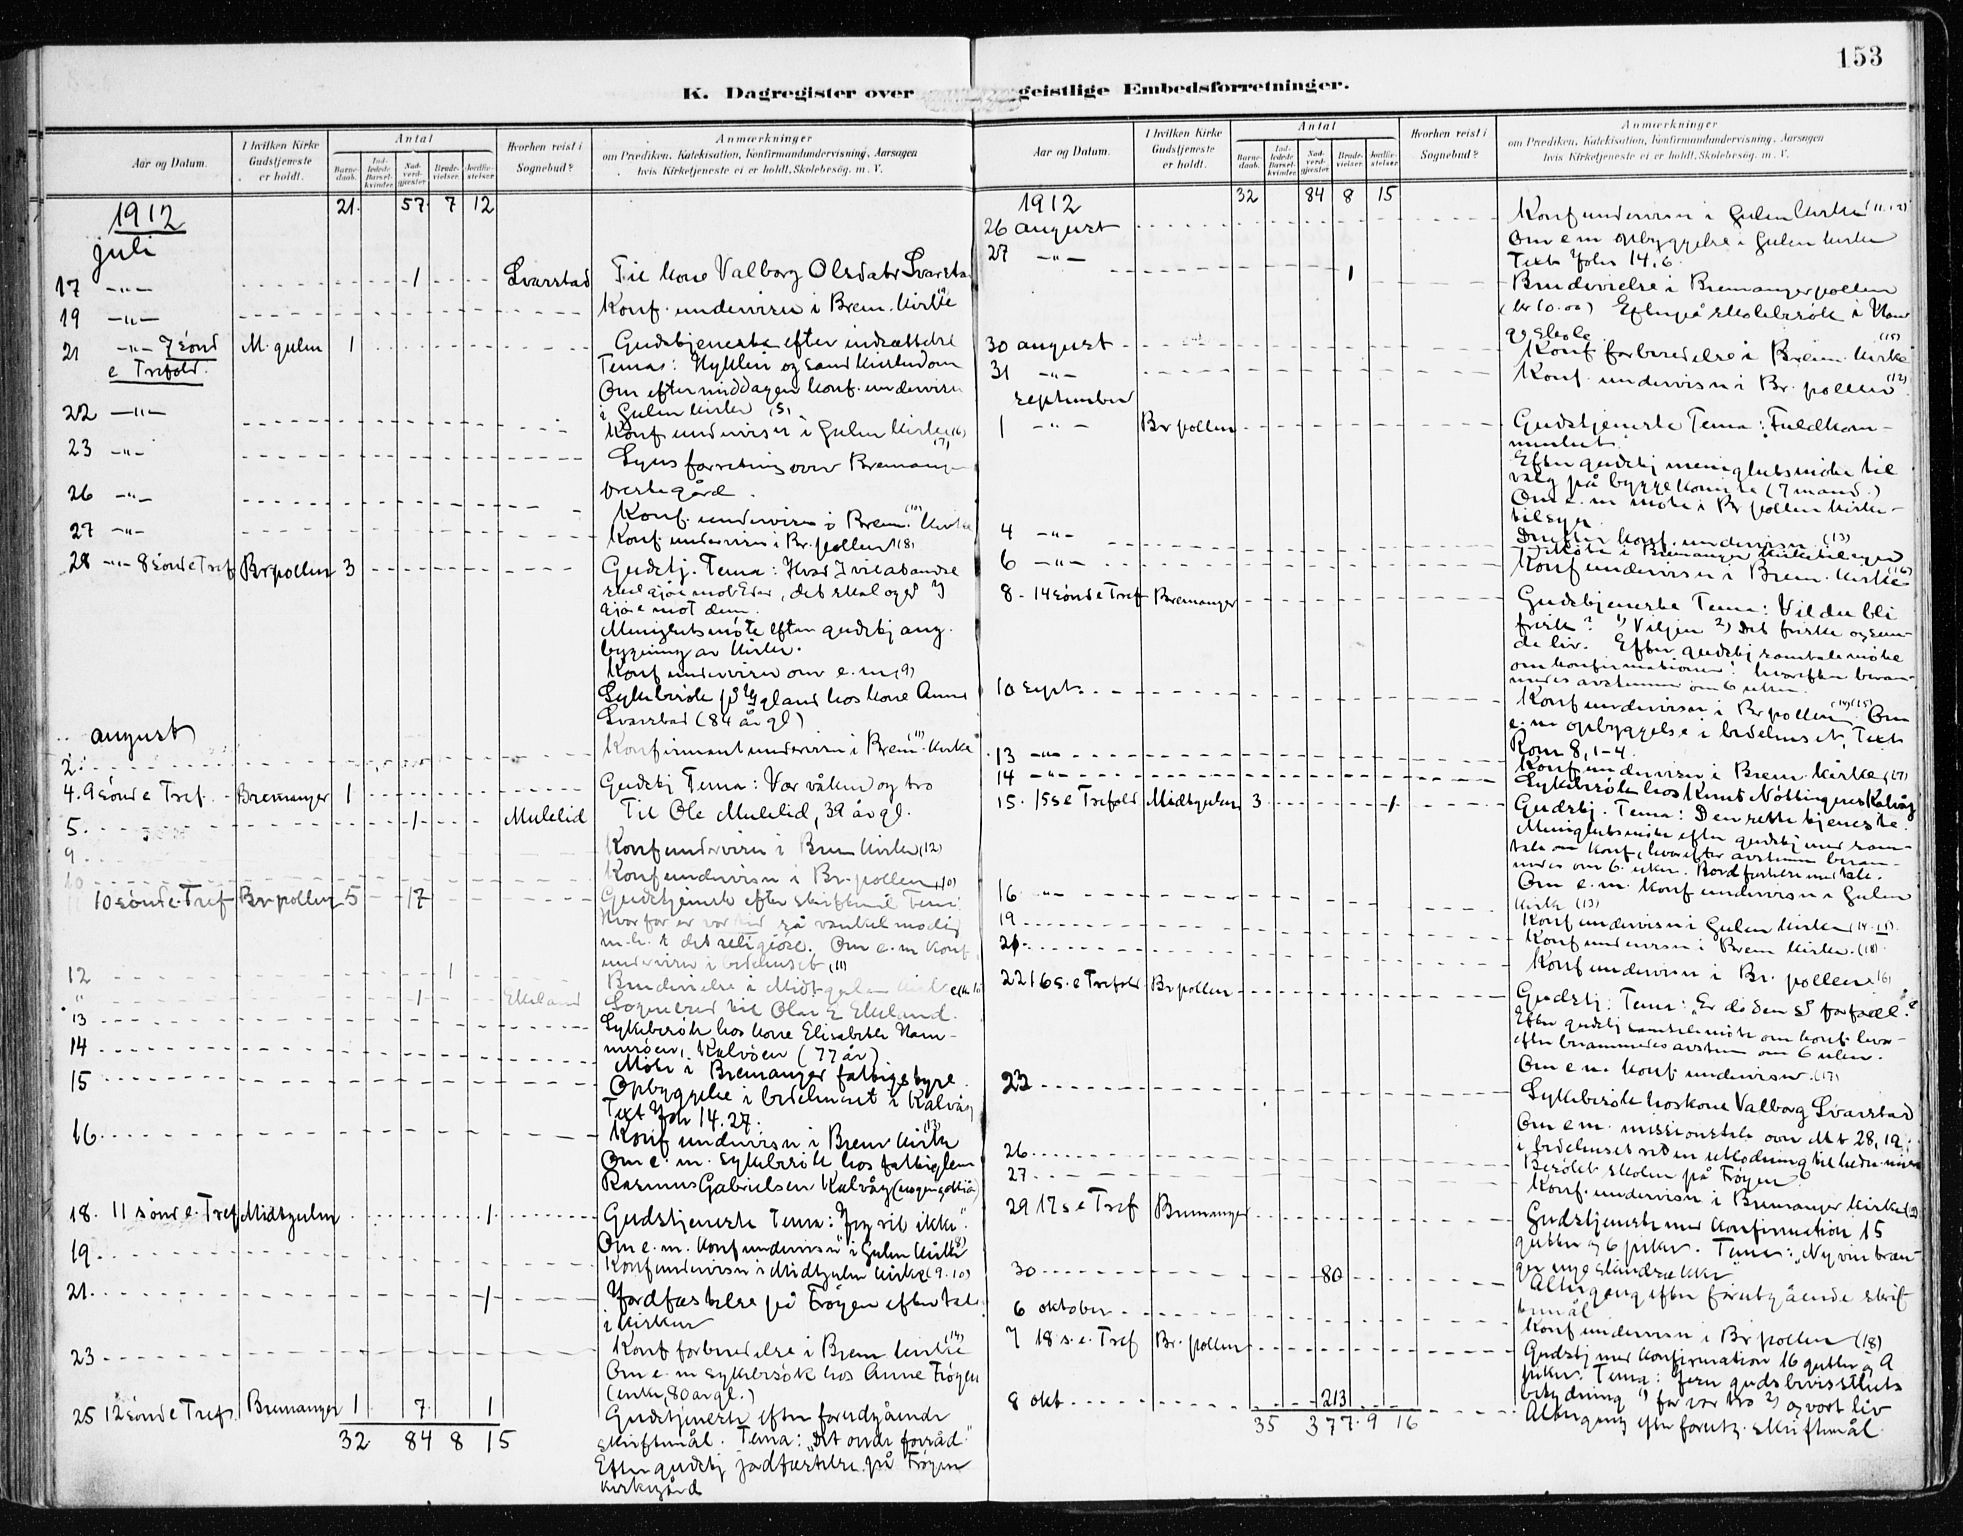 153
K. Dagregister over geistlige Embedsforretninger.
Aar og Datum.
I hvilken Kirke Gudstjeneste er holdt.
Antal
Barnedaab.
Indledede Barselkvinder
Nadverdgjester
Brudevielser
Jordfæstelser
Hvorhen reist i Sognebud?
Anmærkninger
om Prædiken, Katekisation, Konfirmandundervisning, Aarsagen
hvis Kirketjeneste ei er holdt, Skolebesög. m. V.
1912 21 57 7 12
juli
17 -"- 1 Svarstad Til kone Valborg Olsdatr Svarstad
19 -"- Konf. undervisn i Brem. kirke
21 -"- 7 sönd e Trefold. M. gulen 1 Gudstjeneste efter indsættelse
Temas: Hykleri og sand kristendom
Om eftermiddagen konf. undervisn
i Gulen kirke (5)
22 -"- Konf undervisn i Gulen kirke (6)
23 -"- Synsforretning over Bremanger
prestegård.
26 -"- Konf. undervisn i Brem. kirke (10)
27 -"- Konf. undervisn i Br. pollen (8)
28 -"- 8 sönd e Tref Br pollen 3 Gudstj. Tema: Hvad I vil at andre
skal gjöre mot Eder, det skal også I
gjöre mot dem.
Menighetsmöte efter gudstj ang.
bygning av kirke.
Konf undervisn om e. m (9)
Sykebesök på Igland hos kone Anne
Svarstad (84 år gl)
august
2. Konfirmantundervisn i Brem. kirke (11)
4. 9 sönd e Tref. Bremanger 1 Gudstj Tema: Vær våken og tro
5. 1 Mulelid Til Ole Mulelid, 39 år gl.
9. Konf undervisn i Brem kirke (12)
10 Konf undervisn i Br. pollen (10)
11 10 sönd e. Tref Br pollen 5 17 Gudstjeneste efter skriftemål Tema:
Hvorfor er vor tid så vankelmodig
m. h. t. det religiöse. Om e. m konf
undervisn i bedehuset (11)
12 1 Brudevielse i Midtgulen kirke
" 1 Elkeland Sognebud til Olav E Elkeland.
13 Sykebesök hos kone Elisabeth Ham-
meröen, Kalvöen (77 år)
14 Möte i Bremanger fattigstyre.
15 Opbyggelse i bedehuset i Kalvåg
Text Joh 14. 27.
16 Konf undervisn i Brem kirke (13)
Om e. m. sykebesök hos fattiglem
Rasmus Gabrielsen Kalvåg
18. 11 sönd e. Tref Midtgulen 1 Gudstjeneste Tema: "Jeg vil ikke".
Om e. m. konf undervisn i Gulen kirke (8)
19. Konf undervisn i Midtgulen kirke (9. 10)
21. 1 Jordfæstelse på Fröyen efter tale
i kirken
23 Konf forberedelse i Brem kirke (14)
Om e. m sykebesök hos Anne Fröyen
(enke, 80 år gl.)
25 12 sönd e Tref. Bremanger 1 7 1 Gudstjeneste efter forutgående
skriftemål. Tema: "Det onde forråd."
Efter gudstj jordfæstelse på Fröyen
kirkegård
32 84 8 15
Aar og Datum.
I hvilken Kirke Gudstjeneste er holdt.
Antal
Barnedaab.
Indledede Barselkvinder
Nadverdgjester
Brudevielser
Jordfæstelser
Hvorhen reist i Sognebud?
Anmærkninger
om Prædiken, Katekisation, Konfirmandundervisning, Aarsagen
hvis Kirketjeneste ei er holdt, Skolebesög. m. V.
1912 32 84 8 15
26 august Konf undervisn i Gulen kirke (11. 12)
Om e m opbyggelse i Gulen kirke
Text Joh 14. 6.
27 -"- 1 Brudevielse i Bremangerpollen
(kr 10.00) Efterpå skolebesök i
skole
30 august Konf forberedelse i Brem. kirke (15)
31 -"- Konf. undervisn i Br. pollen (12)
september
1 -"- Br pollen Gudstjeneste Tema: Fuldkom-
menhet.
Efter gudstj menighetsmöte til
valg på byggekomite (7 mand.)
Om e. m möte i Br pollen kirke-
tilsyn.
Derefter konf. undervisn (13)
4 -"- Möte i Bremanger kirketilsyn
6 -"- Konf undervisn i Brem. kirke (16)
8 - 14 sönd e Tref Bremanger Gudstjeneste Tema: Vil du bli
frisk? 1) Viljen 2) Det friske og sun-
de liv. Efter gudstj samtalemöte
om konfirmationen: hvorefter beram-
medes avstemn om 6 uker.
10 sept. Konf undervisn i Br pollen (14) (15) Om
e. m opbyggelse i bedehuset, Text
Rom 8, 1-4.
13 -"- Konf. undervisn i Brem kirke (17)
14 -"- Sykebesök hos Knut Nöttingnes Kalvåg
15. 15 s e Trefold Midtgulen 3 1 Gudstj. Tema: Den rette tjeneste.
Menighetsmöte efter gudstj med sam-
tale om konf, hvorefter avstemn beram-
medes om 6 uker. Jordfæstelse med tale.
Om e. m. konf undervisn i Gulen
kirke (13)
16. -"- Konf undervisn i Gulen kirke (14. 15).
19. Konf undervisn i Brem kirke. (18)
21. Konf undervisn i Br. pollen (16)
22 16 s. e Trefold Br pollen Gudstj: Tema: "Er döden et forfall?"
Efter gudstj samtalemöte om konf. hvor-
efter berammedes avstemn om 6 uker.
Om e m. konf undervisn. (17)
23 Sykebesök hos kone Valborg Svarstad
Om e m. missionstale over Mt 28, 19.
i bedehuset ved en utlodning til hedn. mis
26. Besökt skolen på Fröyen
27. Konf. undervisn i Bremanger kirke
29 17 s e Tref Bremanger Gudstjeneste med konfirmation 15
gutter og 6 piker. Tema: "Ny vin træn-
ger nye skindsækker"
30 80 Altergang efter forutgående skrif-
temål
6 oktober Konf undervisn i Br pollen (18)
7 18 s. e. Tref Br. pollen Gudstj med konfirmation 16 gutter og
piker. Tema: Jesu gudsbevissthets
betydning 1) for vor tro 2) og vort liv
8 okt. 213 Altergang efter forutg. skriftemål.
35 377 9 16